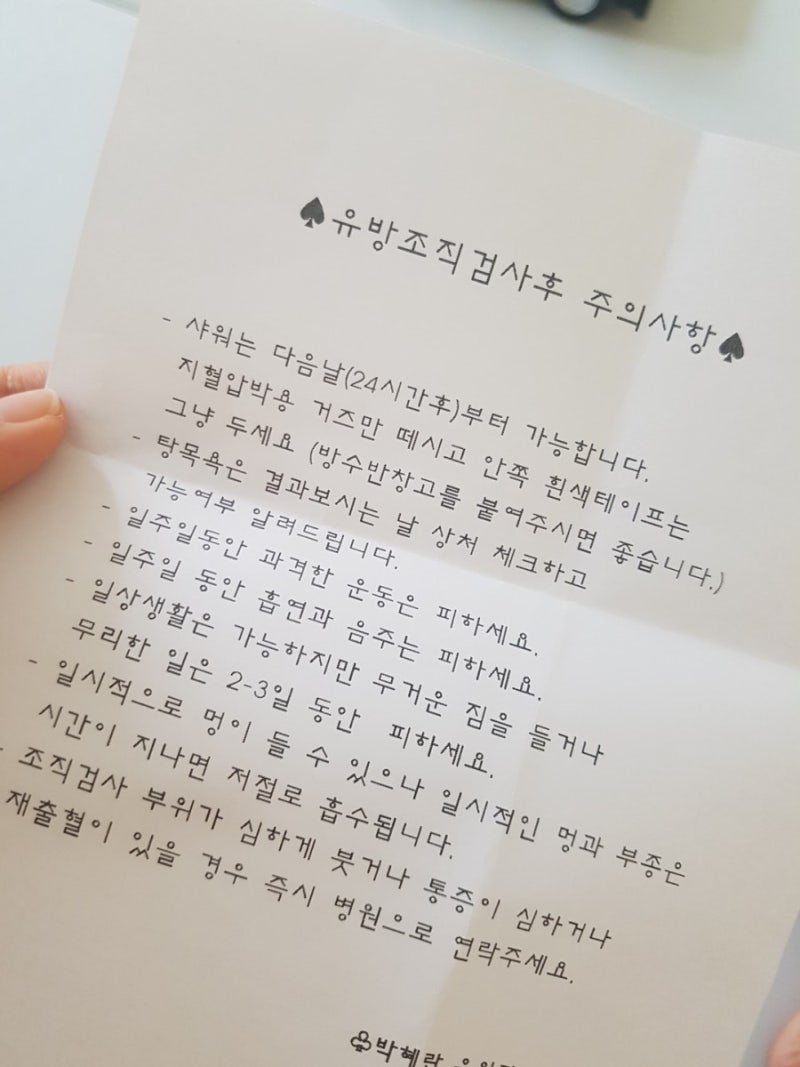 ♠유방조직검사후 주의사항♠
- 샤워는 다음날(24시간후)부터 가능합니다.
지혈압박용 거즈만 떼시고 안쪽 흰색테이프는
그냥 두세요 (방수반창고를 붙여주시면 좋습니다.)
- 탕목욕은 결과보시는 날 상처 체크하고
가능여부 알려드립니다.
- 일주일동안 과격한 운동은 피하세요.
- 일주일 동안 흡연과 음주는 피하세요.
- 일상생활은 가능하지만 무거운 짐을 들거나
무리한 일은 2-3일 동안 피하세요.
- 일시적으로 멍이 들 수 있으나 일시적인 멍과 부종은
시간이 지나면 저절로 흡수됩니다.
- 조직검사 부위가 심하게 붓거나 통증이 심하거나
재출혈이 있을 경우 즉시 병원으로 연락주세요.
♧박혜란